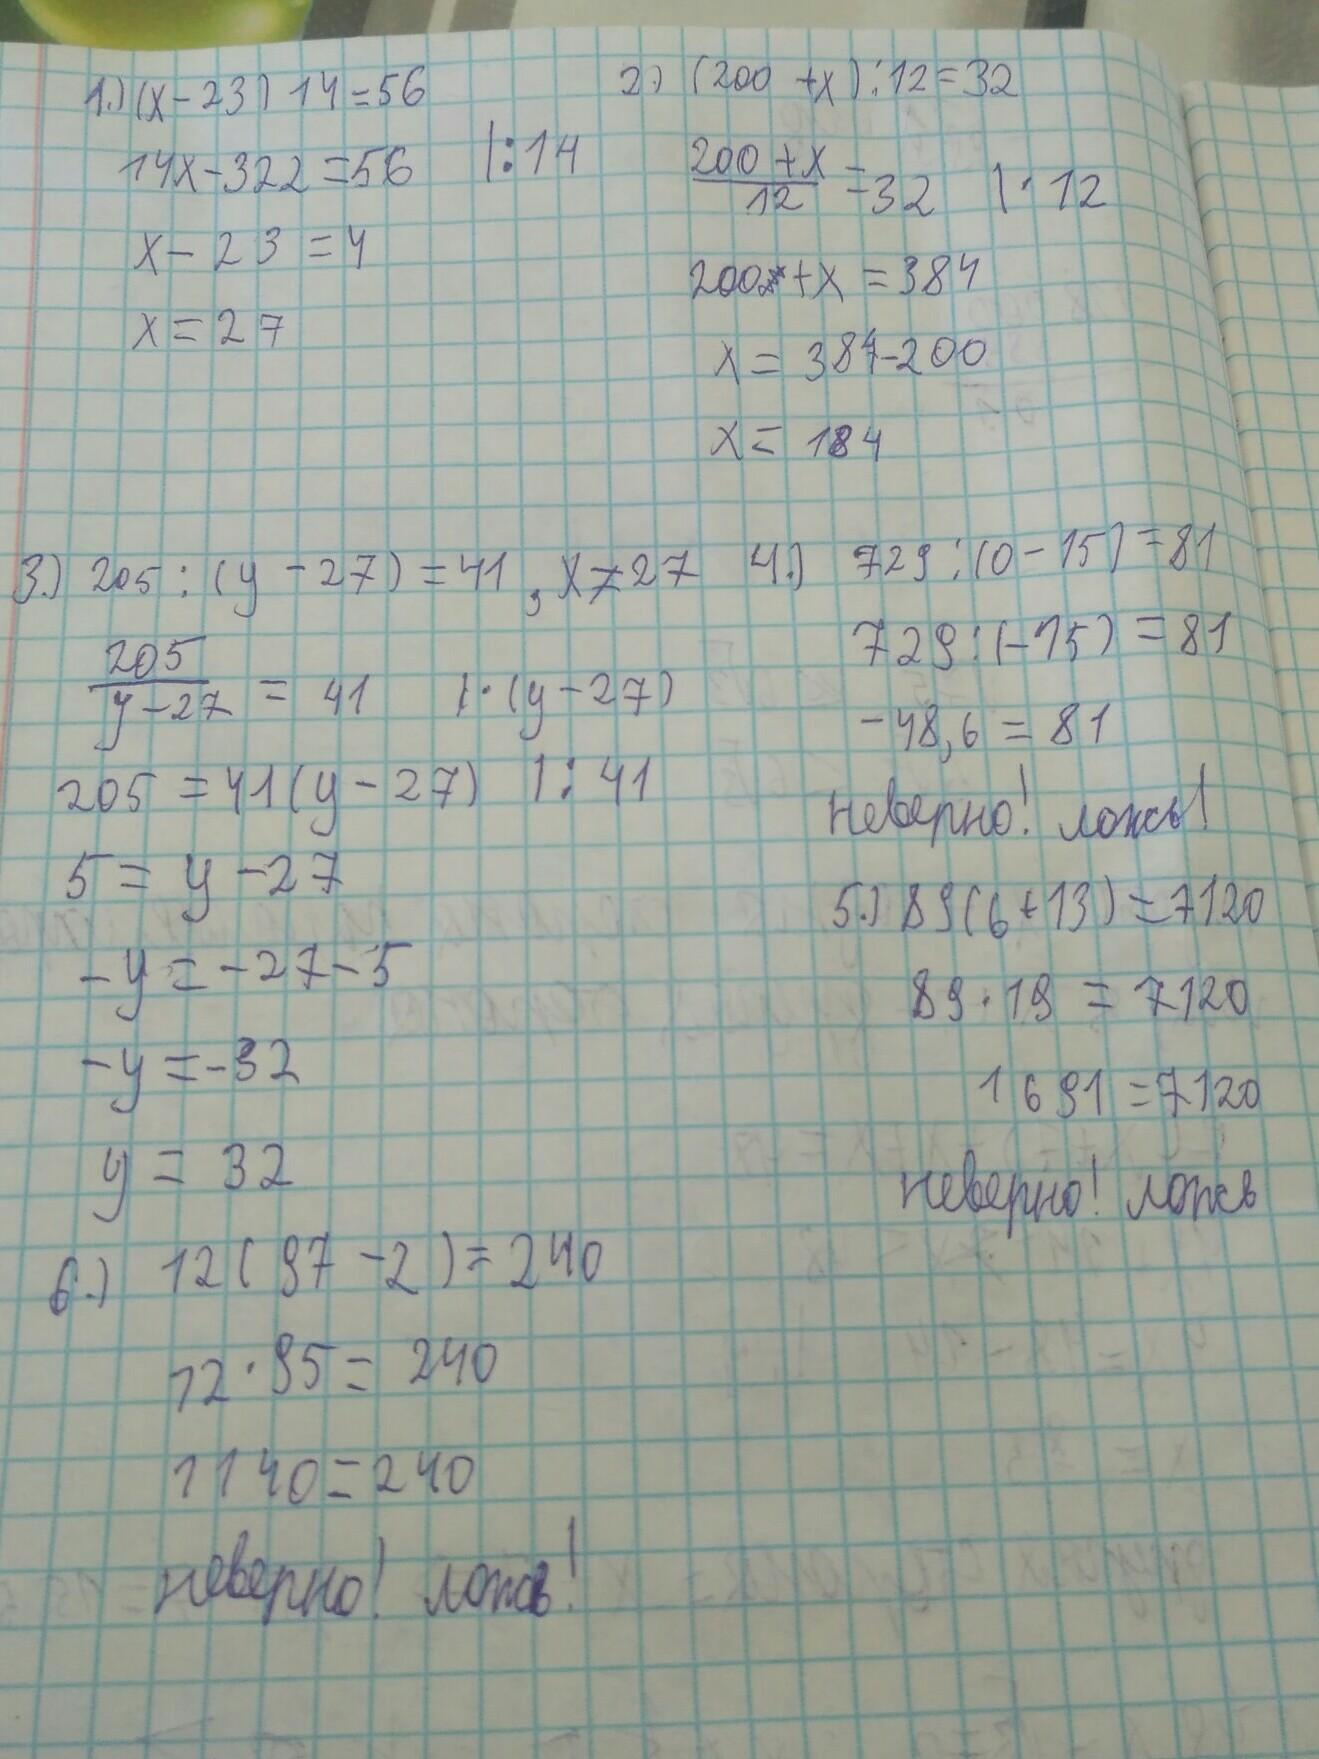 1.) (x-23) 14=56
14x-322=56 |:14
x-23=4
x=27
2.) (200+x):12=32
200+x
12
=32 |·12
200+x=384
x=384-200
x=184
3.) 205:(y-27)=41, x≠27
205
y-27
=41 |·(y-27)
205=41(y-27) |:41
5=y-27
-y=-27-5
-y=-32
y=32
4.) 729:(0-15)=81
729:(-15)=81
-48,6=81
неверно! ложь!
5.) 89(6+13)=7120
89·19=7120
1691=7120
неверно! ложь
6.) 12(97-2)=240
12·95=240
1140=240
неверно! ложь!